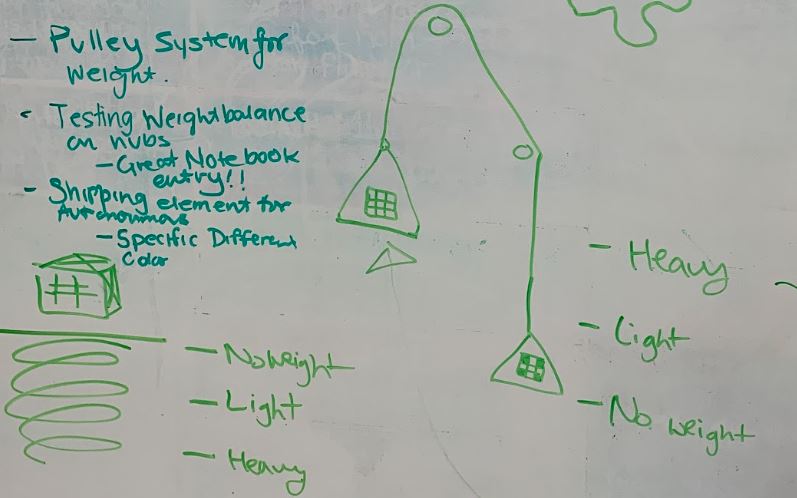 - Pulley System for
Weight.
- Testing Weight balance
on hubs
- Great Notebook
entry!!
- Shipping element for
Autonomous
- Specific Different
Color
- Heavy
- Light
- No weight
- No weight
- Light
- Heavy